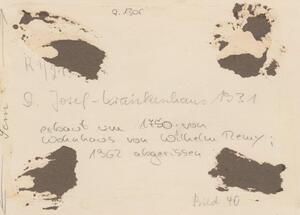 Q. 1301
Q. Josef-Krankenhaus 1931
erbaut um 1750 von
Wohnhaus von Wilhelm Remy;
1962 abgerissen
Bild 40